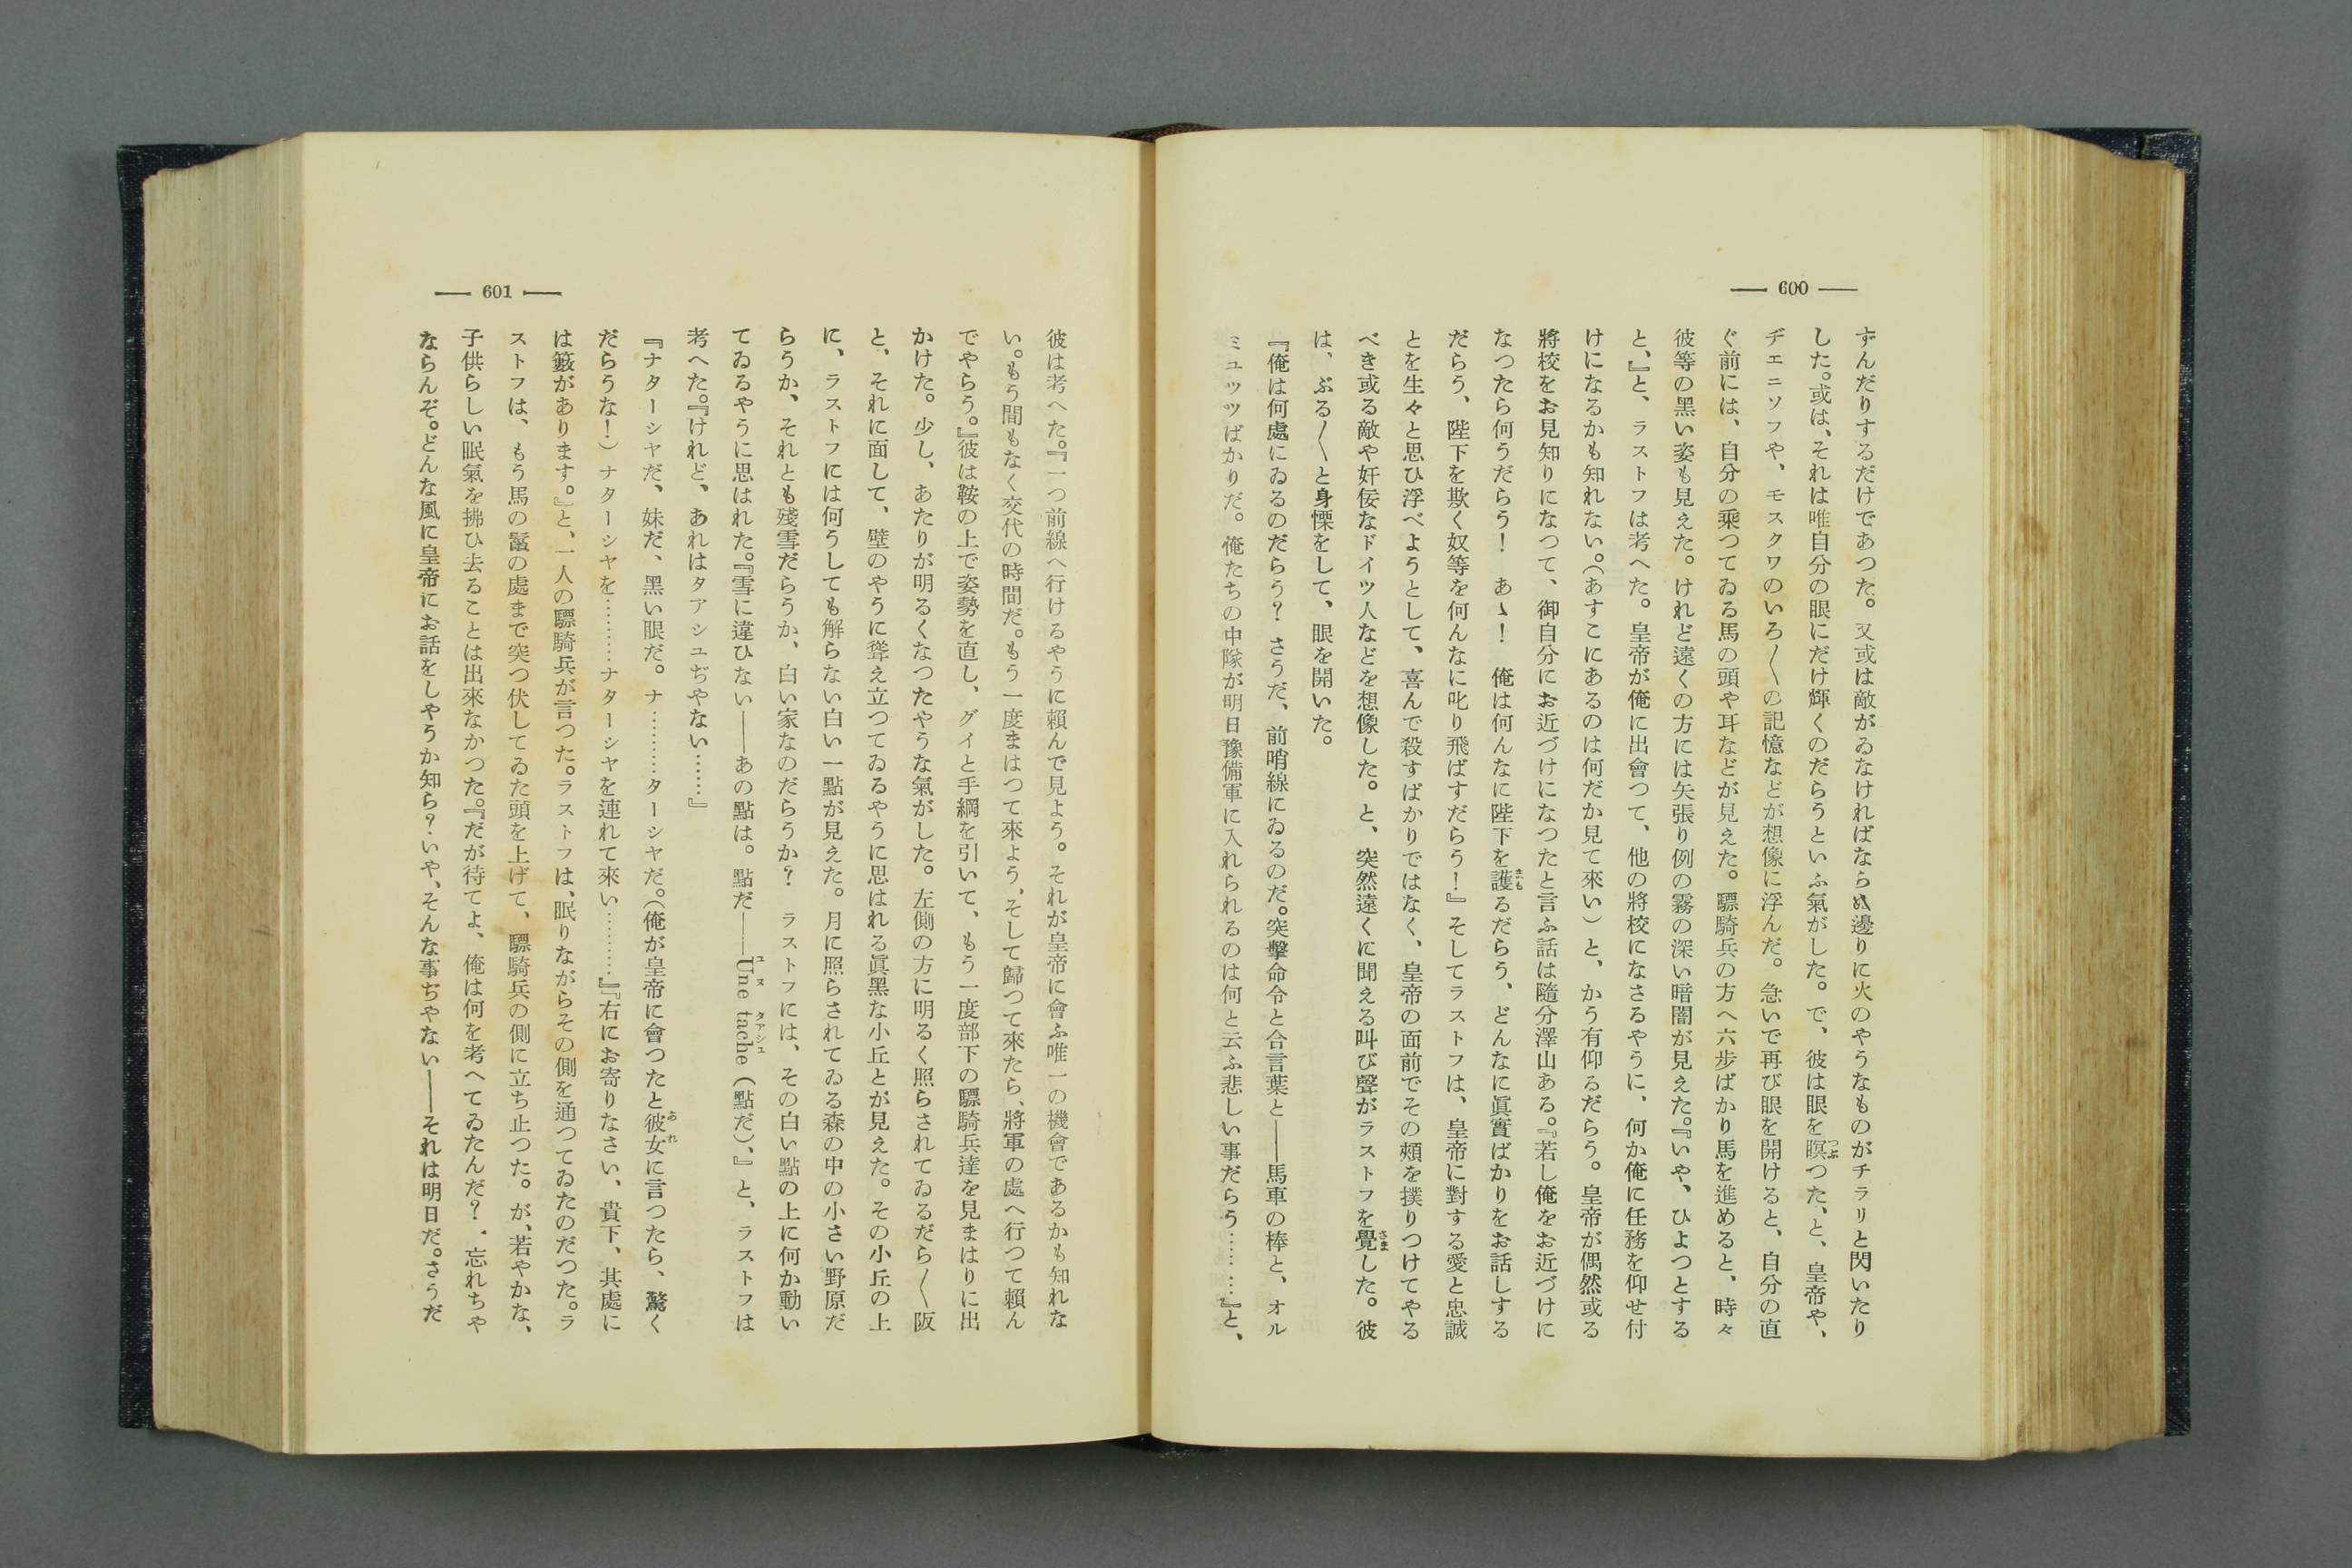 — 600 —
ずんだりするだけであつた。又或は敵がゐなければならぬ邊りに火のやうなものがチラリと閃いたり
した。或は、それは唯自分の眼にだけ輝くのだらうといふ氣がした。で、彼は眼を瞑つた、と、皇帝や、
ヂェニソフや、モスクワのいろ〳〵の記憶などが想像に浮んだ。急いで再び眼を開けると、自分の直
ぐ前には、自分の乘つてゐる馬の頭や耳などが見えた。驃騎兵の方へ六步ばかり馬を進めると、時々
彼等の黑い姿も見えた。けれど遠くの方には矢張り例の霧の深い暗闇が見えた。『いや、ひよつとする
と、』と、ラストフは考へた。皇帝が俺に出會つて、他の將校になさるやうに、何か俺に任務を仰せ付
けになるかも知れない。（あすこにあるのは何だか見て來い）と、かう有仰るだらう。皇帝が偶然或る
將校をお見知りになつて、御自分にお近づけになつたと言ふ話は隨分澤山ある。『若し俺をお近づけに
なつたら何うだらう！　あゝ！　俺は何んなに陛下を護るだらう、どんなに眞實ばかりをお話しする
だらう、陛下を欺く奴等を何んなに叱り飛ばすだらう！』そしてラストフは、皇帝に對する愛と忠誠
とを生々と思ひ浮べようとして、喜んで殺すばかりではなく、皇帝の面前でその頰を撲りつけてやる
べき或る敵や奸佞なドイツ人などを想像した。と、突然遠くに聞える叫び聲がラストフを覺した。彼
は、ぶる〳〵と身慄をして、眼を開いた。
『俺は何處にゐるのだらう？　さうだ、前哨線にゐるのだ。突擊命令と合言葉と――馬車の棒と、オル
ミュッツばかりだ。俺たちの中隊が明日豫備軍に入れられるのは何と云ふ悲しい事だらう………』と、
— 601 —
彼は考へた。『一つ前線へ行けるやうに賴んで見よう。それが皇帝に會ふ唯一の機會であるかも知れな
い。もう間もなく交代の時間だ。もう一度まはつて來よう、そして歸つて來たら、將軍の處へ行つて賴ん
でやらう。』彼は鞍の上で姿勢を直し、グイと手綱を引いて、もう一度部下の驃騎兵達を見まはりに出
かけた。少し、あたりが明るくなつたやうな氣がした。左側の方に明るく照らされてゐるだら〳〵阪
と、それに面して、壁のやうに聳え立つてゐるやうに思はれる眞黑な小丘とが見えた。その小丘の上
に、ラストフには何うしても解らない白い一點が見えた。月に照らされてゐる森の中の小さい野原だ
らうか、それとも殘雪だらうか、白い家なのだらうか？　ラストフには、その白い點の上に何か動い
てゐるやうに思はれた。『雪に違ひない――あの點は。點だ――Une tache（點だ）、』と、ラストフは
考へた。『けれど、あれはタアシユぢやない……』
『ナターシヤだ、妹だ、黑い眼だ。ナ………ターシヤだ。（俺が皇帝に會つたと彼女に言つたら、驚く
だらうな！）ナターシヤを………ナターシヤを連れて來い………』『右にお寄りなさい、貴下、其處に
は籔があります。』と、一人の驃騎兵が言つた。ラストフは、眠りながらその側を通つてゐたのだつた。ラ
ストフは、もう馬の鬣の處まで突つ伏してゐた頭を上げて、驃騎兵の側に立ち止つた。が、若やかな、
子供らしい眠氣を拂ひ去ることは出來なかつた。『だが待てよ、俺は何を考へてゐたんだ？．忘れちや
ならんぞ。どんな風に皇帝にお話をしやうか知ら？いや、そんな事ぢやない――それは明日だ。さうだ